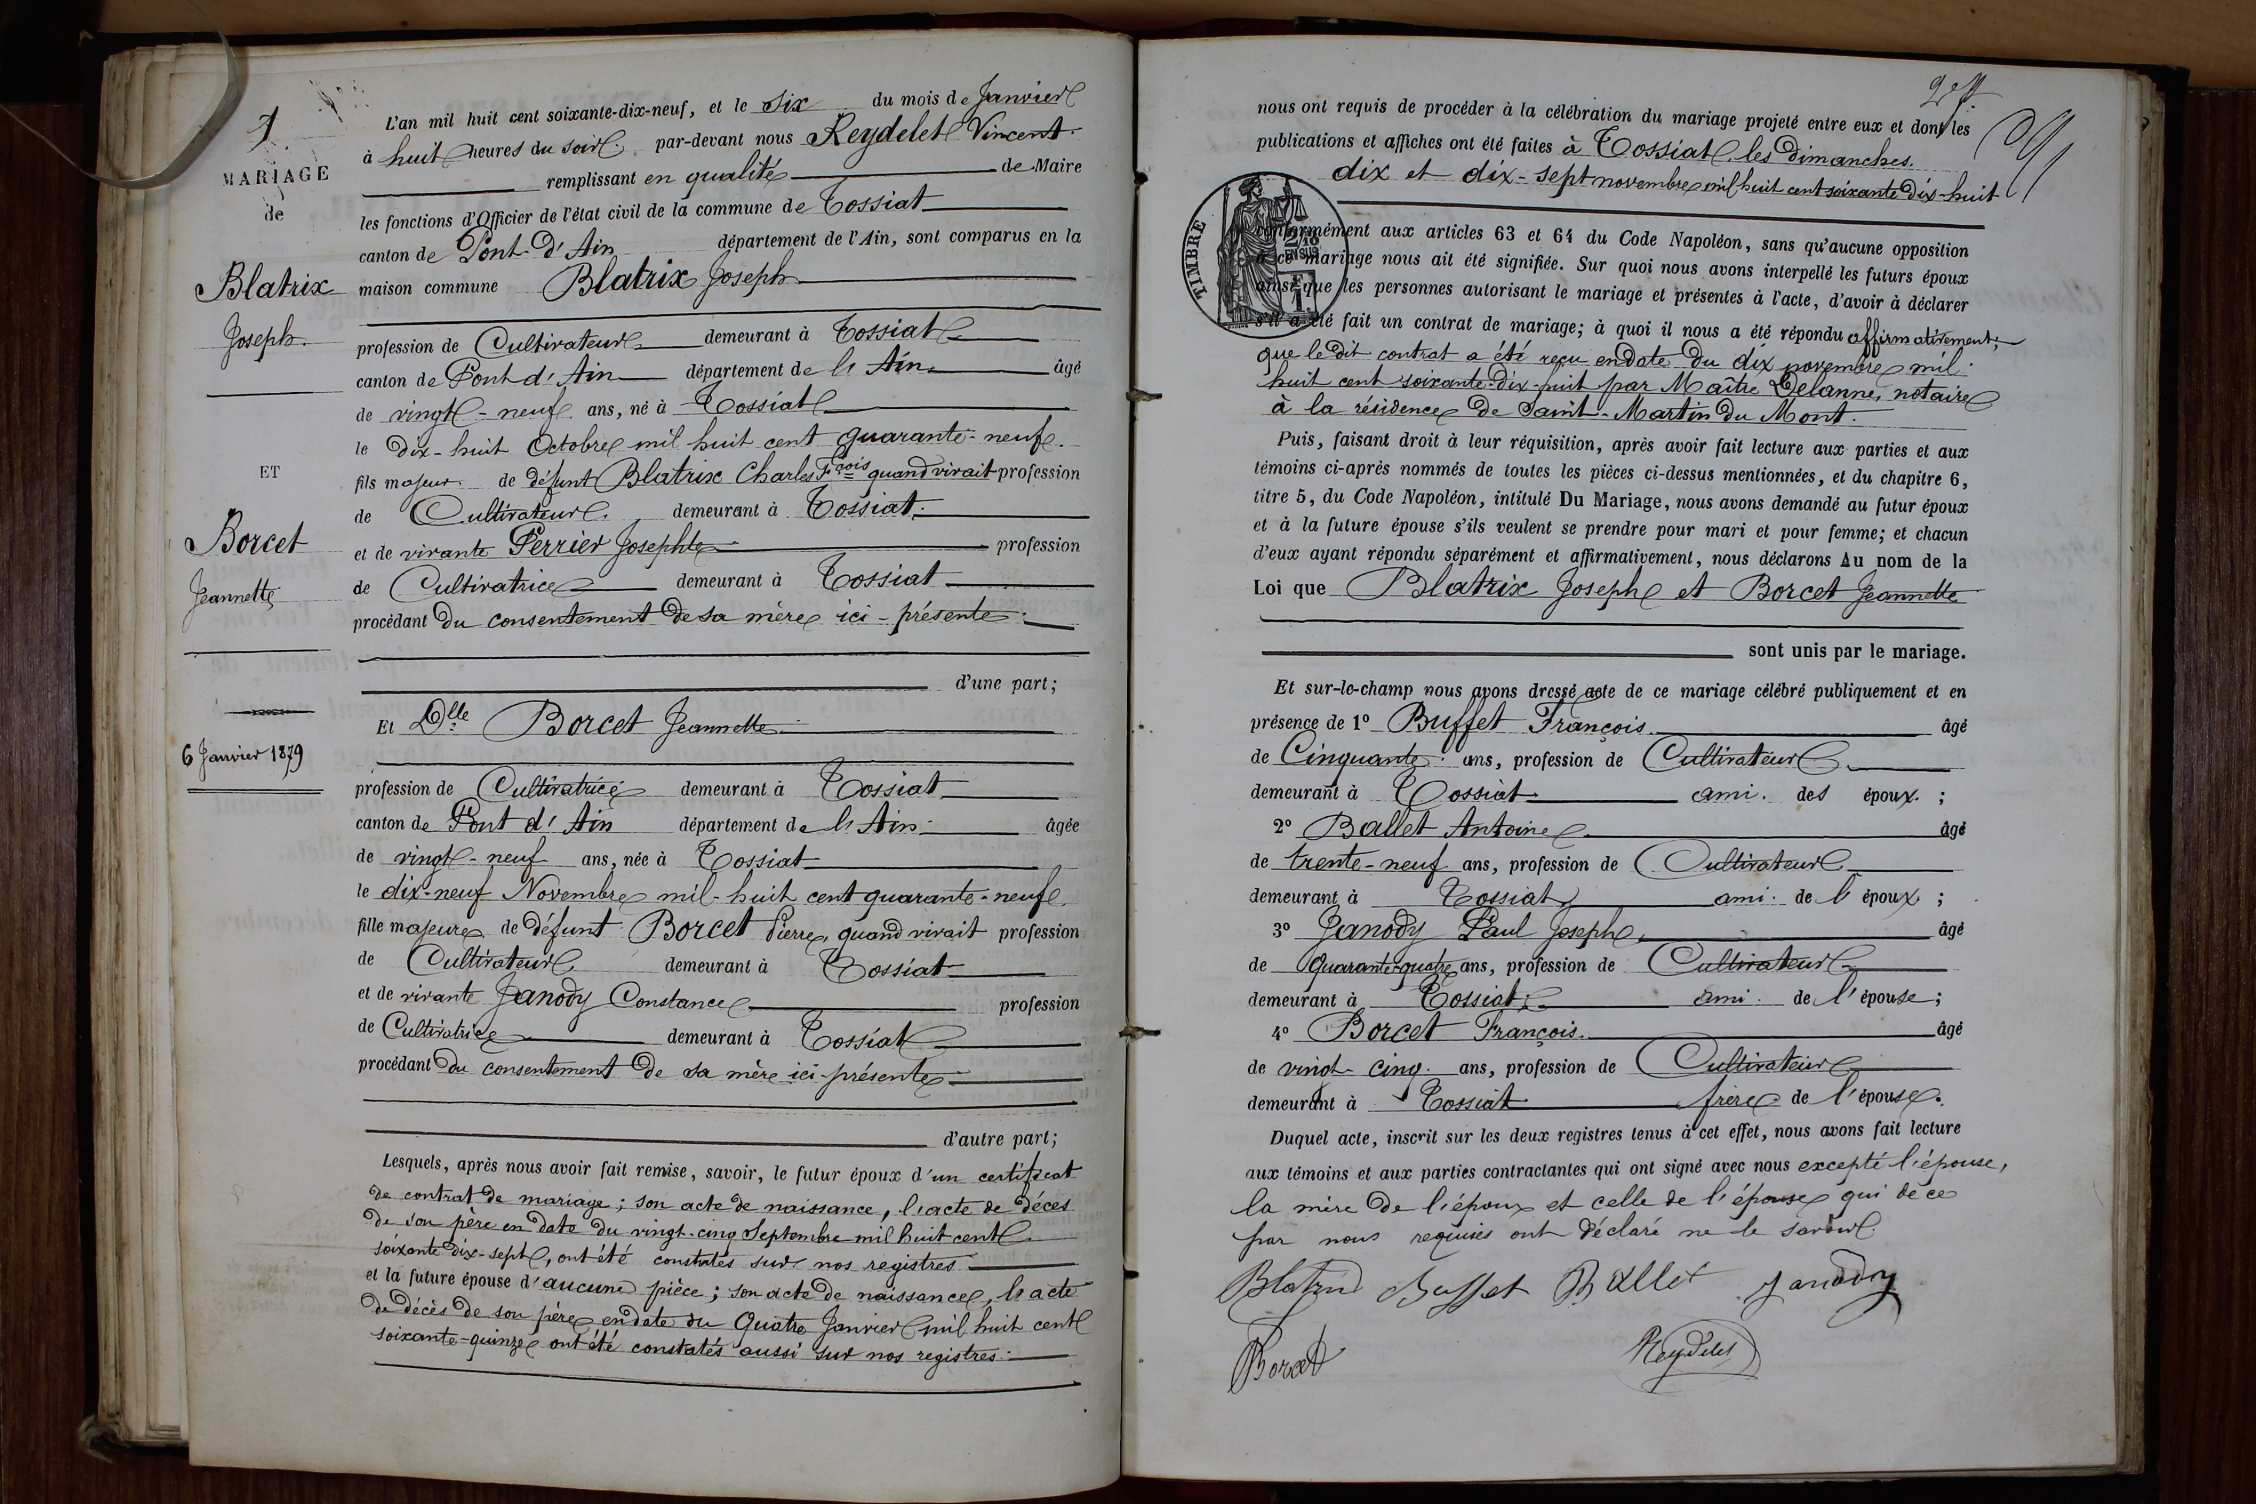 1
MARIAGE
de
Blatrix
Joseph.
ET
Borcet
Jeannette
6 Janvier 1879
L'an mil huit cent soixante-dix-neuf, et le six du mois de Janvier
à huit heures du soir. par-devant nous Reydelet Vincent.
remplissant en qualité de Maire
les fonctions d'Officier de l'état civil de la commune de Tossiat
canton de Pont-d'Ain département de l'Ain, sont comparus en la
maison commune Blatrix Joseph
profession de Cultivateur demeurant à Tossiat
canton de Pont d'Ain département de l'Ain. âgé
de vingt-neuf ans, né à Tossiat
le dix-huit Octobre mil huit cent quarante-neuf.
fils majeur. de défunt Blatrix Charles Frois quand vivait profession
de Cultivateur. demeurant à Tossiat.
et de vivante Perrier Josephte profession
de Cultivatrice demeurant à Tossiat
procédant du consentement de sa mère ici-présente.
d'une part;
Et Dlle Borcet Jeannette.
profession de Cultivatrice demeurant à Tossiat
canton de Pont d'Ain département de l'Ain. âgée
de vingt-neuf ans, née à Tossiat
le dix-neuf Novembre mil-huit cent quarante-neuf.
fille majeure de défunt Borcet Pierre, quand vivait profession
de Cultivateur demeurant à Tossiat
et de vivante Janody Constance profession
de Cultivatrice demeurant à Tossiat
procédant du consentement de sa mère ici-présente.
d'autre part;
Lesquels, après nous avoir fait remise, savoir, le futur époux d'un certificat
de contrat de mariage; son acte de naissance, l'acte de décès
de son père en date du vingt-cinq Septembre mil huit cent
soixante dix-sept, ont été constatés sur nos registres.
et la future épouse d'aucune pièce; son acte de naissance, l'acte
de décès de son père en date du Quatre Janvier mil huit cent
soixante-quinze ont été constatés aussi sur nos registres.
nous ont requis de procéder à la célébration du mariage projeté entre eux et dont les
publications et affiches ont été faites à Tossiat, les dimanches.
dix et dix-sept novembre mil huit cent soixante dix-huit
TIMBRE
conformément aux articles 63 et 64 du Code Napoléon, sans qu'aucune opposition
à ce mariage nous ait été signifiée. Sur quoi nous avons interpellé les futurs époux
ainsi que les personnes autorisant le mariage et présentes à l'acte, d'avoir à déclarer
s'il a été fait un contrat de mariage; à quoi il nous a été répondu affirmativement;
que le dit contrat a été reçu en date du dix novembre mil
huit cent soixante-dix-huit par Maître Delanne, notaire
à la résidence de Saint-Martin du Mont.
Puis, faisant droit à leur réquisition, après avoir fait lecture aux parties et aux
témoins ci-après nommés de toutes les pièces ci-dessus mentionnées, et du chapitre 6,
titre 5, du Code Napoléon, intitulé Du Mariage, nous avons demandé au futur époux
et à la future épouse s'ils veulent se prendre pour mari et pour femme; et chacun
d'eux ayant répondu séparément et affirmativement, nous déclarons Au nom de la
Loi que Blatrix Joseph et Borcet Jeannette
sont unis par le mariage.
Et sur-le-champ nous avons dressé acte de ce mariage célébré publiquement et en
présence de 1º Buffet François. âgé
de Cinquante. ans, profession de Cultivateur
demeurant à Tossiat ami. des époux. ;
2º Ballet Antoine âgé
de trente-neuf ans, profession de Cultivateur
demeurant à Tossiat ami. de l'époux ;
3º Janody Paul Joseph. âgé
de Quarante-quatre ans, profession de Cultivateur
demeurant à Tossiat. ami. de l'épouse ;
4º Borcet François. âgé
de vingt-cinq. ans, profession de Cultivateur
demeurant à Tossiat frère de l'épouse.
Duquel acte, inscrit sur les deux registres tenus à cet effet, nous avons fait lecture
aux témoins et aux parties contractantes qui ont signé avec nous excepté l'épouse,
la mère de l'époux et celle de l'épouse qui de ce
par nous requises ont déclaré ne le savoir.
Blatrix Buffet Ballet Janody
Borcet Reydelet